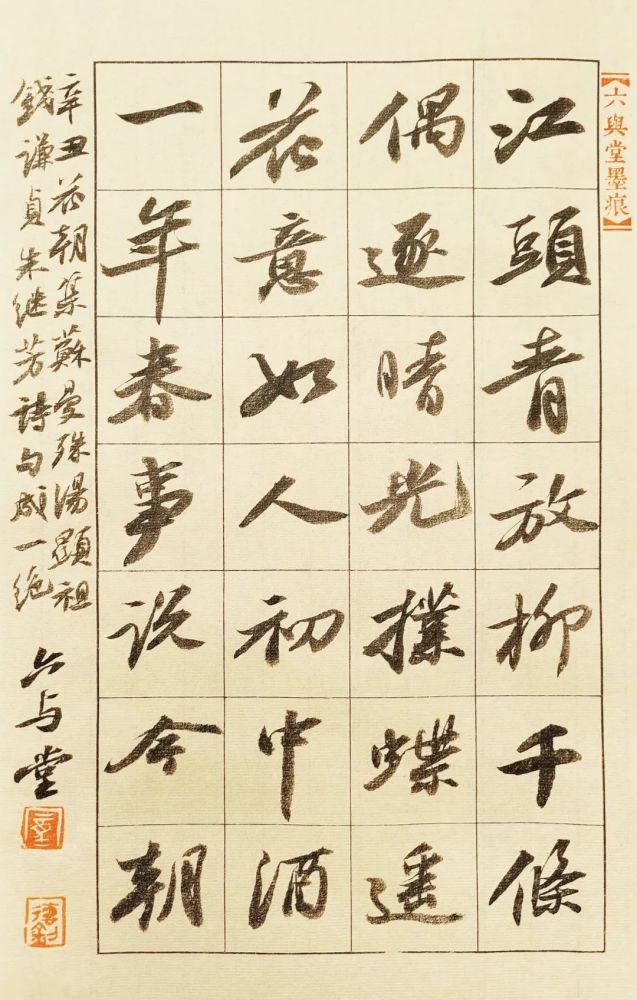 【六與堂墨痕】
江頭青放柳千條
偶逐晴光撲蝶遥
花意如人初中酒
一年春事説今朝
辛丑花朝集蘇曼殊湯顯祖
錢謙貞朱继芳詩句成一絶
六与堂